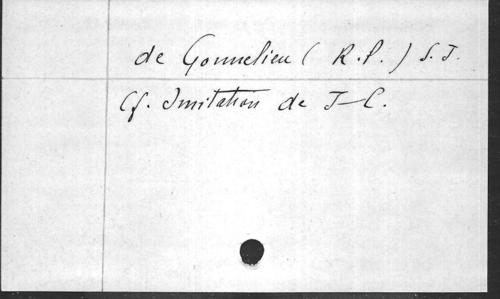 de Gonnelieu ( R.P. ) S.J.
Cf. Imitation de J-C.